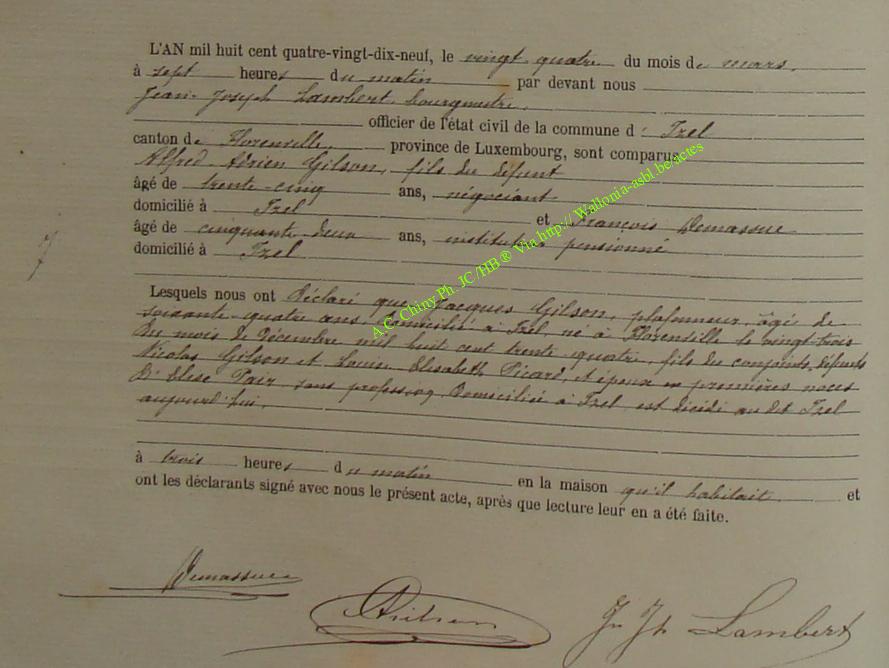 L'AN mil huit cent quatre-vingt-dix-neuf, le vingt quatre du mois de mars,
à sept heures du matin par devant nous
Jean-Joseph Lambert, bourgmestre,
officier de l'état civil de la commune d' Izel
canton de Florenville, province de Luxembourg, sont comparus
Alfred Adrien Gilson, fils du défunt
âgé de trente-cinq ans, négociant
domicilié à Izel et François Demassue
âgé de cinquante deux ans, instituteur pensionné
domicilié à Izel
7
Lesquels nous ont déclaré que Jacques Gilson, plafonneur, âgé de
soixante-quatre ans, domicilié à Izel, né à Florenville le vingt-trois
du mois de Décembre mil huit cent trente quatre, fils des conjoints défunts
Nicolas Gilson et Louise Elisabeth Picard, et époux en premières noces
d'Elise Pair, sans profession, domiciliée à Izel, est décédé au dit Izel
aujourd'hui,
à trois heures du matin en la maison qu'il habitait et
ont les déclarants signé avec nous le présent acte, après que lecture leur en a été faite.
Demassue
Gilson
Jn Jh Lambert
A.C. Chiny Ph. JC /HB® Via http:// Wallonia-asbl.be/actes